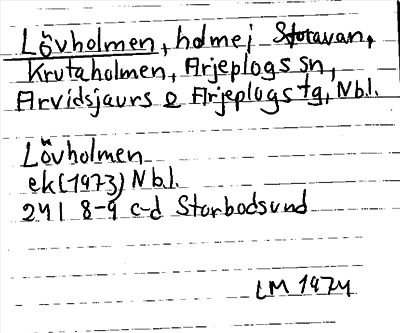 Lövholmen, holme i Storavan,
Krutaholmen, Arjeplogs sn,
Arvidsjaurs o Arjeplogs tg, Nbl.
Lövholmen
ek (1973) Nbl.
24I 8-9 c-d Storbodsund
LM 1974